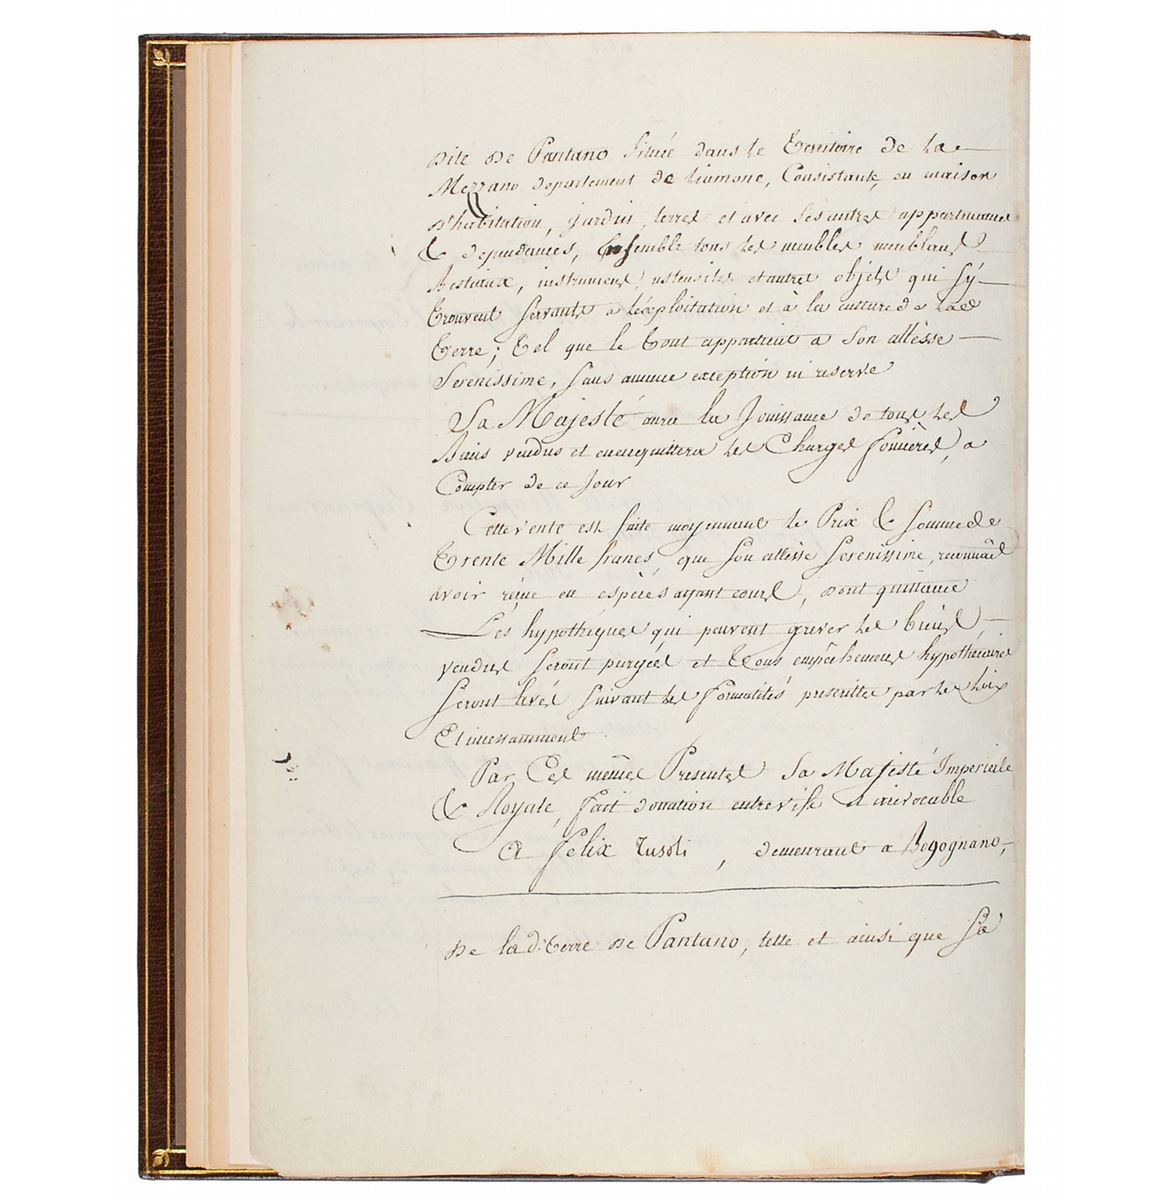 dite de Pantano située dans le Territoire de La
Mezzano departement de Liamone, Consistante, en maison
d'habitation, jardin, terres et avec ses autres appartenances
& dependances, Ensemble tous les meubles meublans
bestiaux, instrumens, ustensiles et autres objets qui s'y
trouvent servants a l'éxploitation et à la culture de La
Terre; Tel que le tout appartient a Son altèsse
Serenissime, sans aucune exception ni reserve
Sa Majesté aura la Jouissance de tous les
Biens vendus et en acquittera les Charges foncières, a
Compter de ce Jour
Cette vente est faite moyennant le Prix & somme de
Trente Mille francs, que Son altèsse Serenissime, reconnait
avoir réçue en espèces ayant cours, dont quittance
Les hypothéques qui peuvent grever les biens
vendus seront purgées et Tous empêchemens hypothécaires
seront levés suivant les formalités prescrittes par les Loix
Et incessamment
Par Ces mêmes Presentes Sa Majesté Imperiale
& Royale, fait donation entrevifs & irrévocable
A Felix Tusoli, demeurant a Bogognano,
De la d. Terre de Pantano, telle et ainsi que Sa